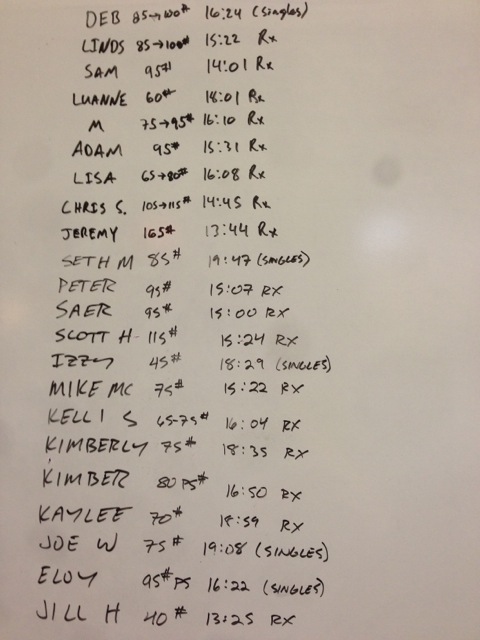 DEB 85→100# 16:24 (Singles)
LINDS 85→100# 15:22 Rx
SAM 95# 14:01 Rx
LUANNE 60# 18:01 Rx
M 75→95# 16:10 Rx
ADAM 95# 15:31 Rx
LISA 65→80# 16:08 Rx
CHRIS S. 105→115# 14:45 Rx
JEREMY 165# 13:44 Rx
SETH M 85# 19:47 (SINGLES)
PETER 95# 15:07 RX
SAER 95# 15:00 RX
SCOTT H 115# 15:24 RX
IZZY 45# 18:29 (SINGLES)
MIKE MC 75# 15:22 RX
KELLI S 65-75# 16:04 RX
KIMBERLY 75# 18:35 RX
KIMBER 80 PS# 16:50 RX
KAYLEE 70# 18:59 RX
JOE W 75# 19:08 (SINGLES)
ELOY 95# PS 16:22 (SINGLES)
JILL H 40# 13:25 RX